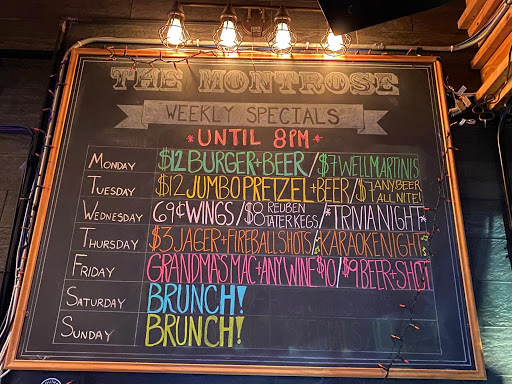 THE MONTROSE
WEEKLY SPECIALS
*UNTIL 8PM*
MONDAY $12 BURGER + BEER / $7 WELL MARTINIS
TUESDAY $12 JUMBO PRETZEL + BEER / $1 ANY BEER ALL NITE!
WEDNESDAY 69¢ WINGS / $8 REUBEN TATER KEGS / *TRIVIA NIGHT*
THURSDAY $3 JAGER + FIREBALL SHOTS / *KARAOKE NIGHT*
FRIDAY GRANDMA'S MAC + ANY WINE $10 / $9 BEER + SHOT
SATURDAY BRUNCH!
SUNDAY BRUNCH!